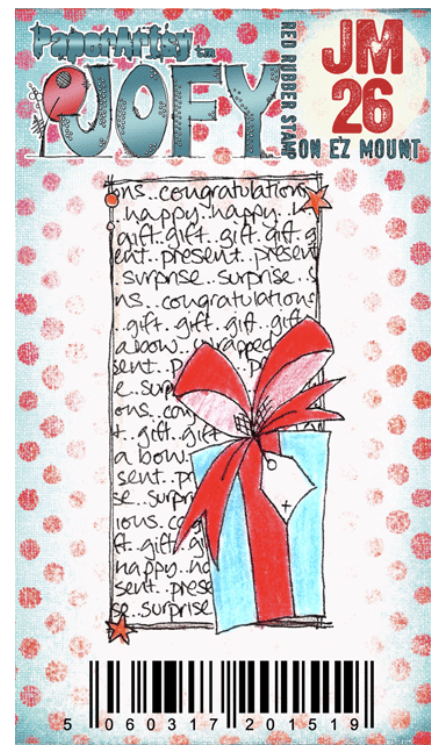 PaperArtsy tm
JOFY
RED RUBBER STAMP
JM
26
ON EZ MOUNT
ons..congratulations
happy..happy..h
gift..gift..gift..gift..g
ent..present..presen
.surprise..surprise..s
ns..congratulations
..gift..gift..gift..gift
a bow..wrapped
sent..p
e..surp
ons..con
t..gift..gift
a bow.
sent..pr
se..surpr
ious..co
ft..gift..g
happy..ha
sent..prese
se..surprise
5 060317 201519